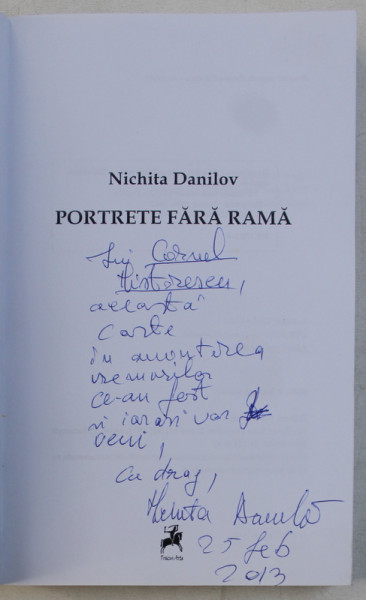 Nichita Danilov
PORTRETE FĂRĂ RAMĂ
Lui Cornel
această
carte
în amintirea
vremurilor
ce-au fost
și iarăși vor
veni,
Cu drag,
Nichita Danilov
25 feb
2013
Tracus Arte